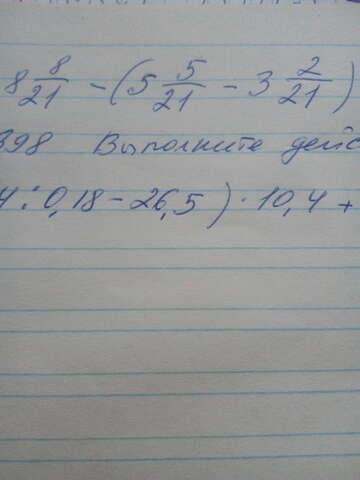 8 8/21 - (5 5/21 - 3 2/21)
398 Выполните дейс
4:0,18-26,5)·10,4+